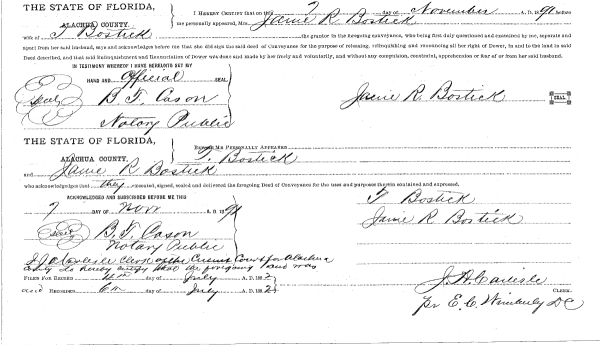 THE STATE OF FLORIDA,
ALACHUA COUNTY.
I HEREBY CERTIFY that on this 7 day of November A. D. 1891 before
me personally appeared, Mrs. Janie R. Bostick
wife of T Bostick the grantor in the foregoing conveyance, who being first duly questioned and examined by me, separate and
apart from her said husband, says and acknowledges before me that she did sign the said deed of Conveyance for the purpose of releasing, relinquishing and renouncing all her right of Dower, in and to the land in said
Deed described, and that said Relinquishment and Renunciation of Dower was done and made by her freely and voluntarily, and without any compulsion, constraint, apprehension or fear of or from her said husband.
IN TESTIMONY WHEREOF I HAVE HEREUNTO SET MY
HAND AND Official SEAL
Seal B. F. Cason
Notary Public
Janie R. Bostick SEAL
THE STATE OF FLORIDA,
ALACHUA COUNTY.
BEFORE ME PERSONALLY APPEARED T. Bostick
and Janie R Bostick
who acknowledges that they executed, signed, sealed and delivered the foregoing Deed of Conveyance for the uses and purposes therein contained and expressed.
ACKNOWLEDGED AND SUBSCRIBED BEFORE ME THIS
7 DAY OF Novr A. D. 1891
Seal B. F. Cason
Notary Public
T Bostick
Janie R. Bostick
J. A. Carlisle Clerk of the Circuit Court for Alachua
County do hereby certify that the foregoing Deed was
FILED FOR RECORD 4th day of July A. D. 1892
and RECORDED 6th day of July A. D. 1892
J. A. Carlisle
CLERK.
pr E. C. Wimberly DC